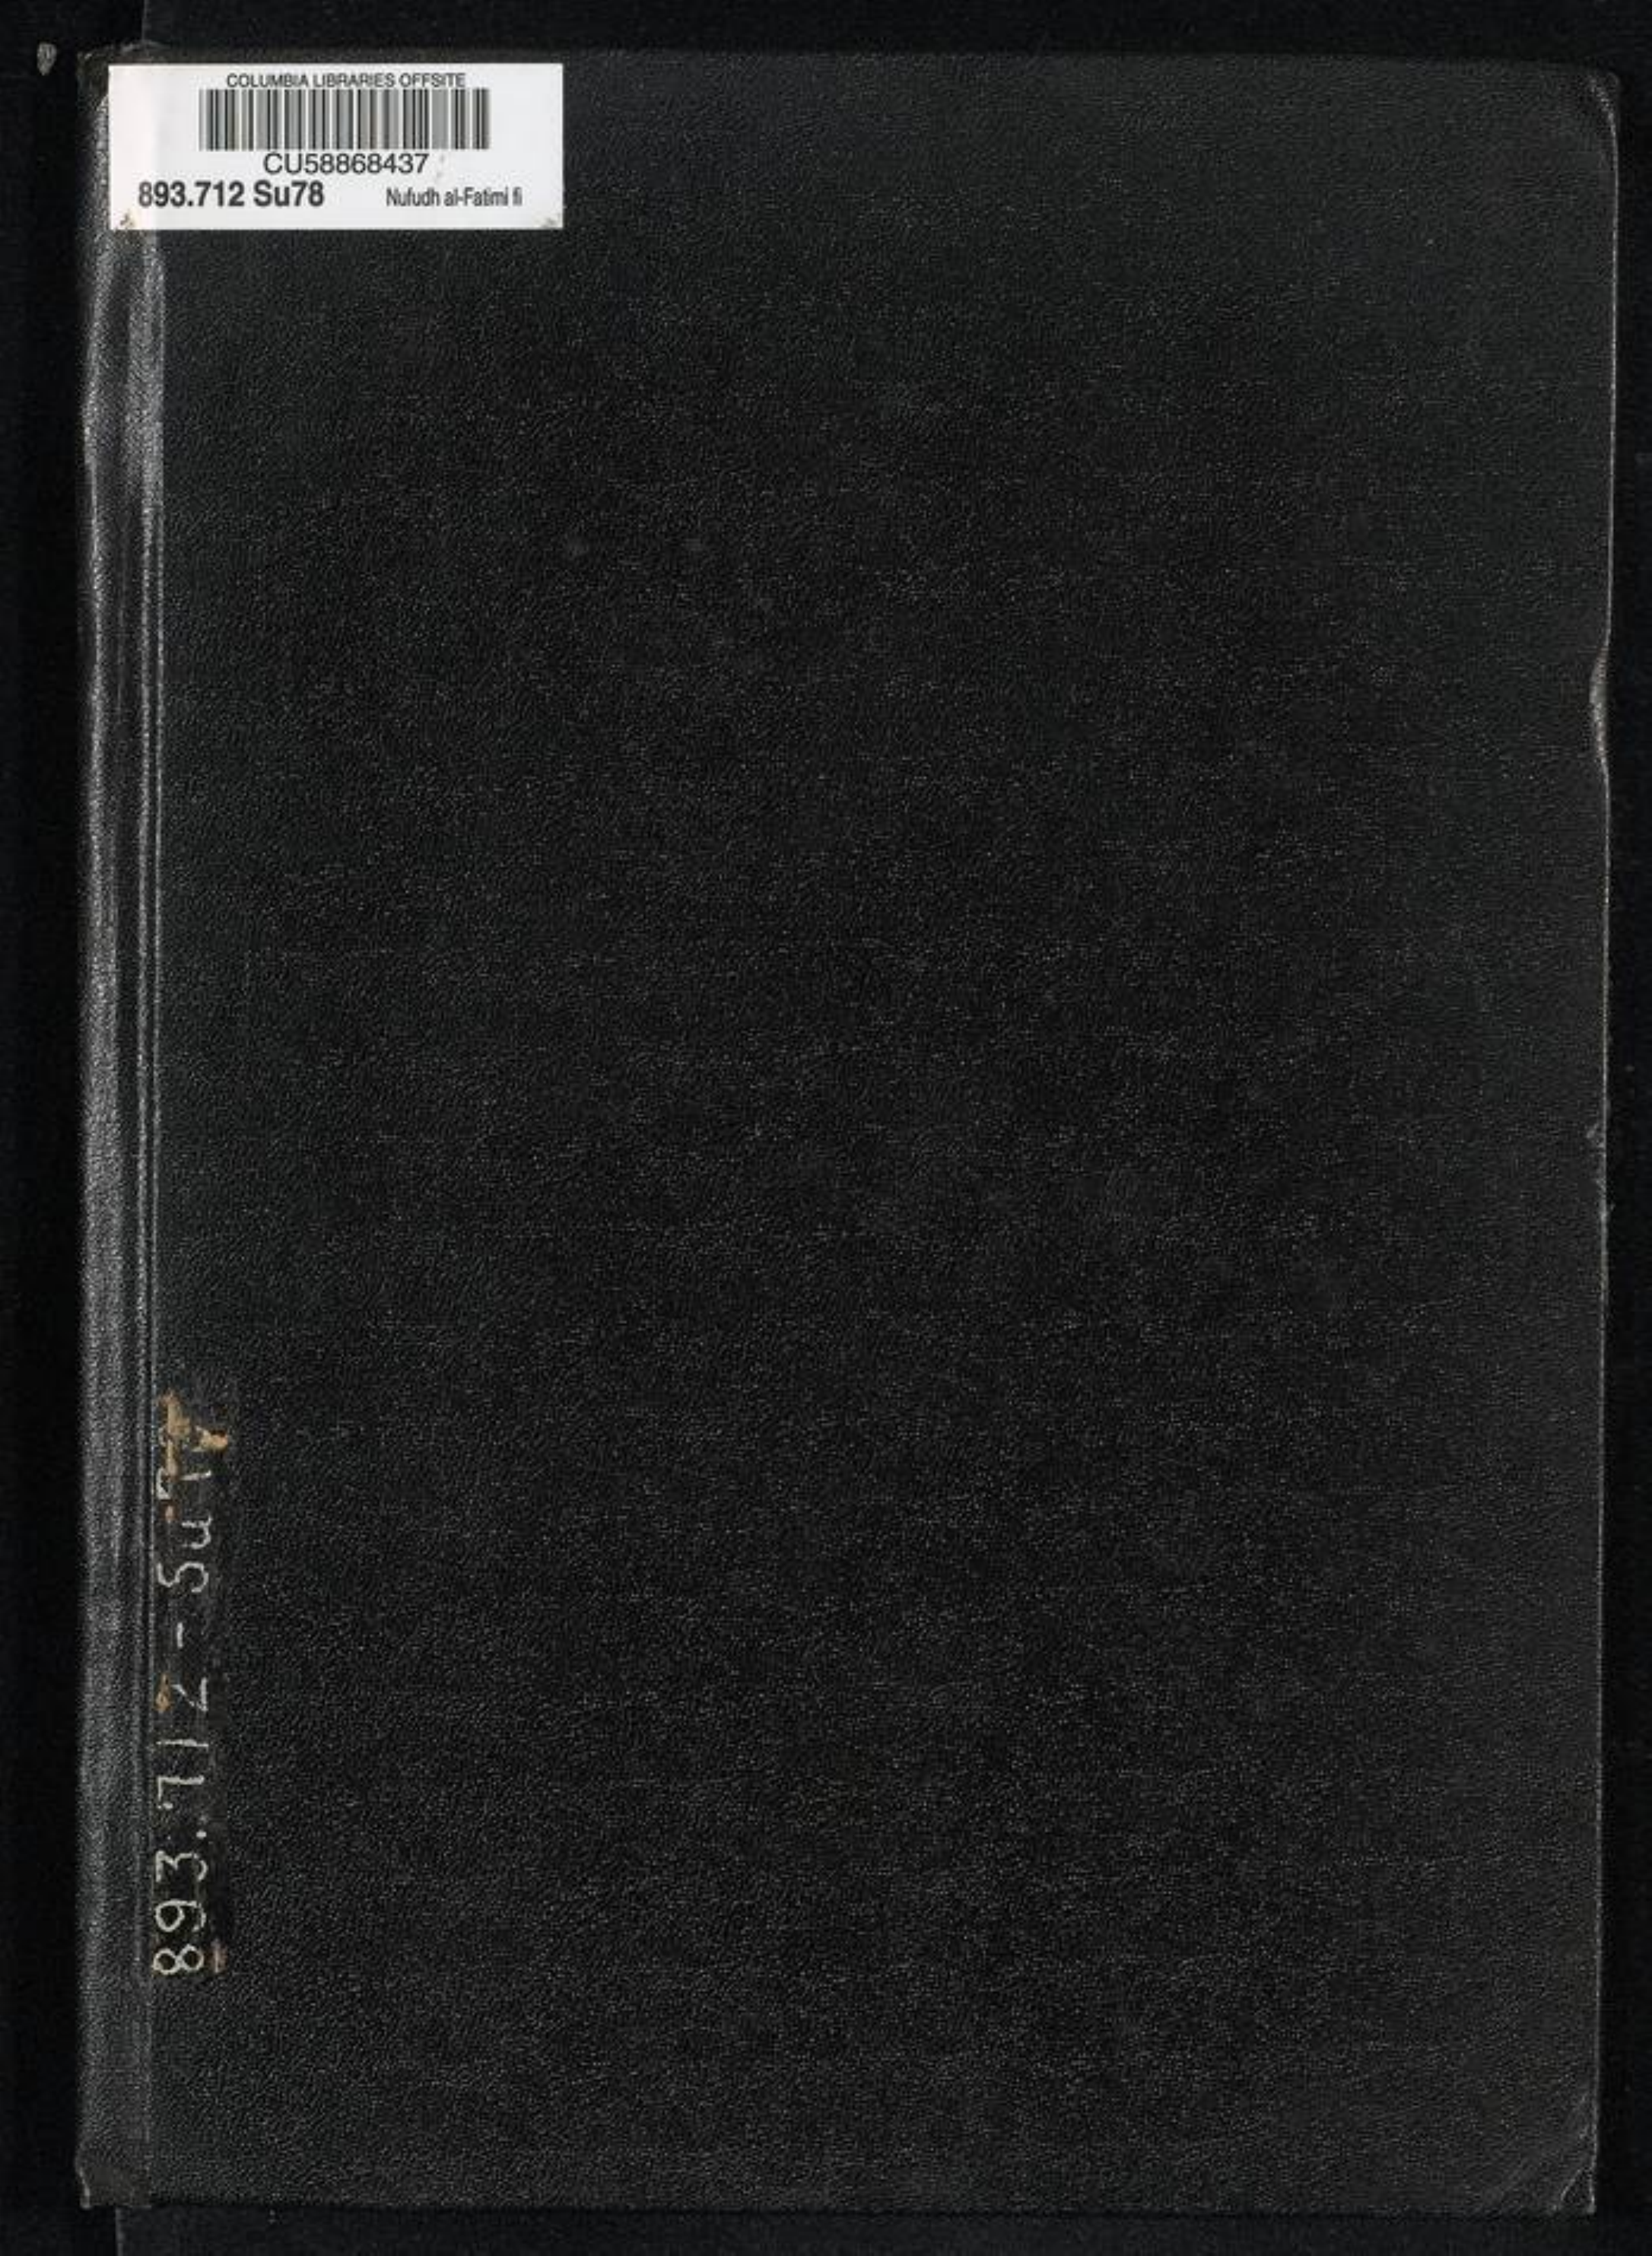 COLUMBIA LIBRARIES OFFSITE
CU58868437
893.712 Su78 Nufudh al-Fatimi fi
893.712-Su7